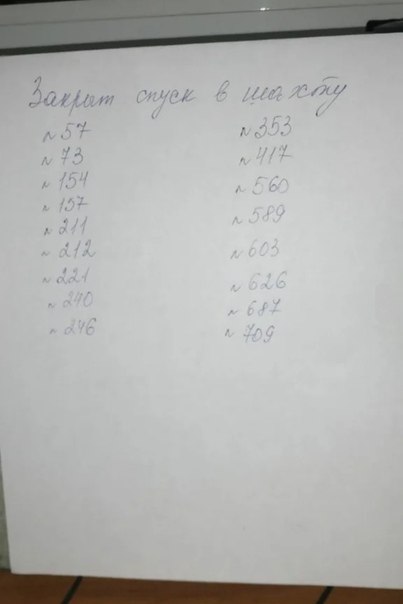 Закрыт спуск в шахту
№57
№73
№154
№157
№211
№212
№221
№240
№246
№353
№417
№560
№589
№603
№626
№687
№709